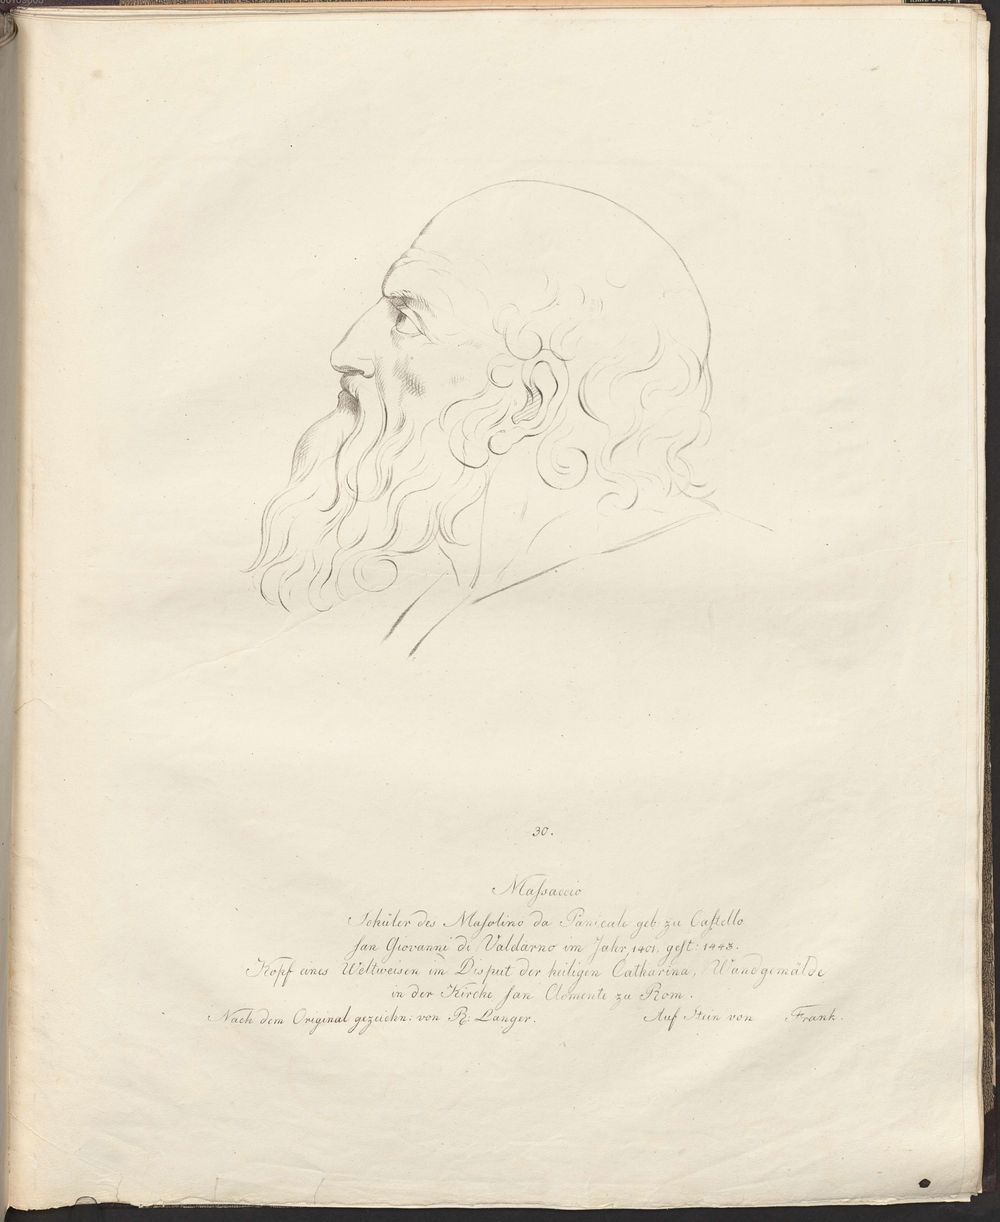 30.
Maſsaccio
Schüler des Maſolino da Panicale geb: zu Caſtello
ſan Giovanni di Valdarno im Jahr 1401, geſt: 1443.
Kopf eines Weltweisen im Disput der heiligen Catharina, Wandgemälde
in der Kirche ſan Clemente zu Rom.
Nach dem Original gezeichn: von R: Langer. Auf Stein von Frank.